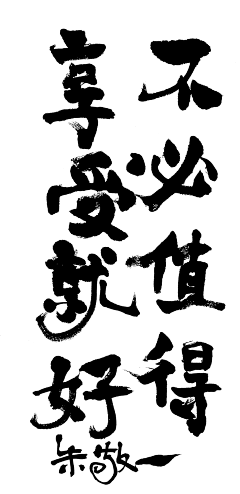 不必值得
享受就好
朱敬一